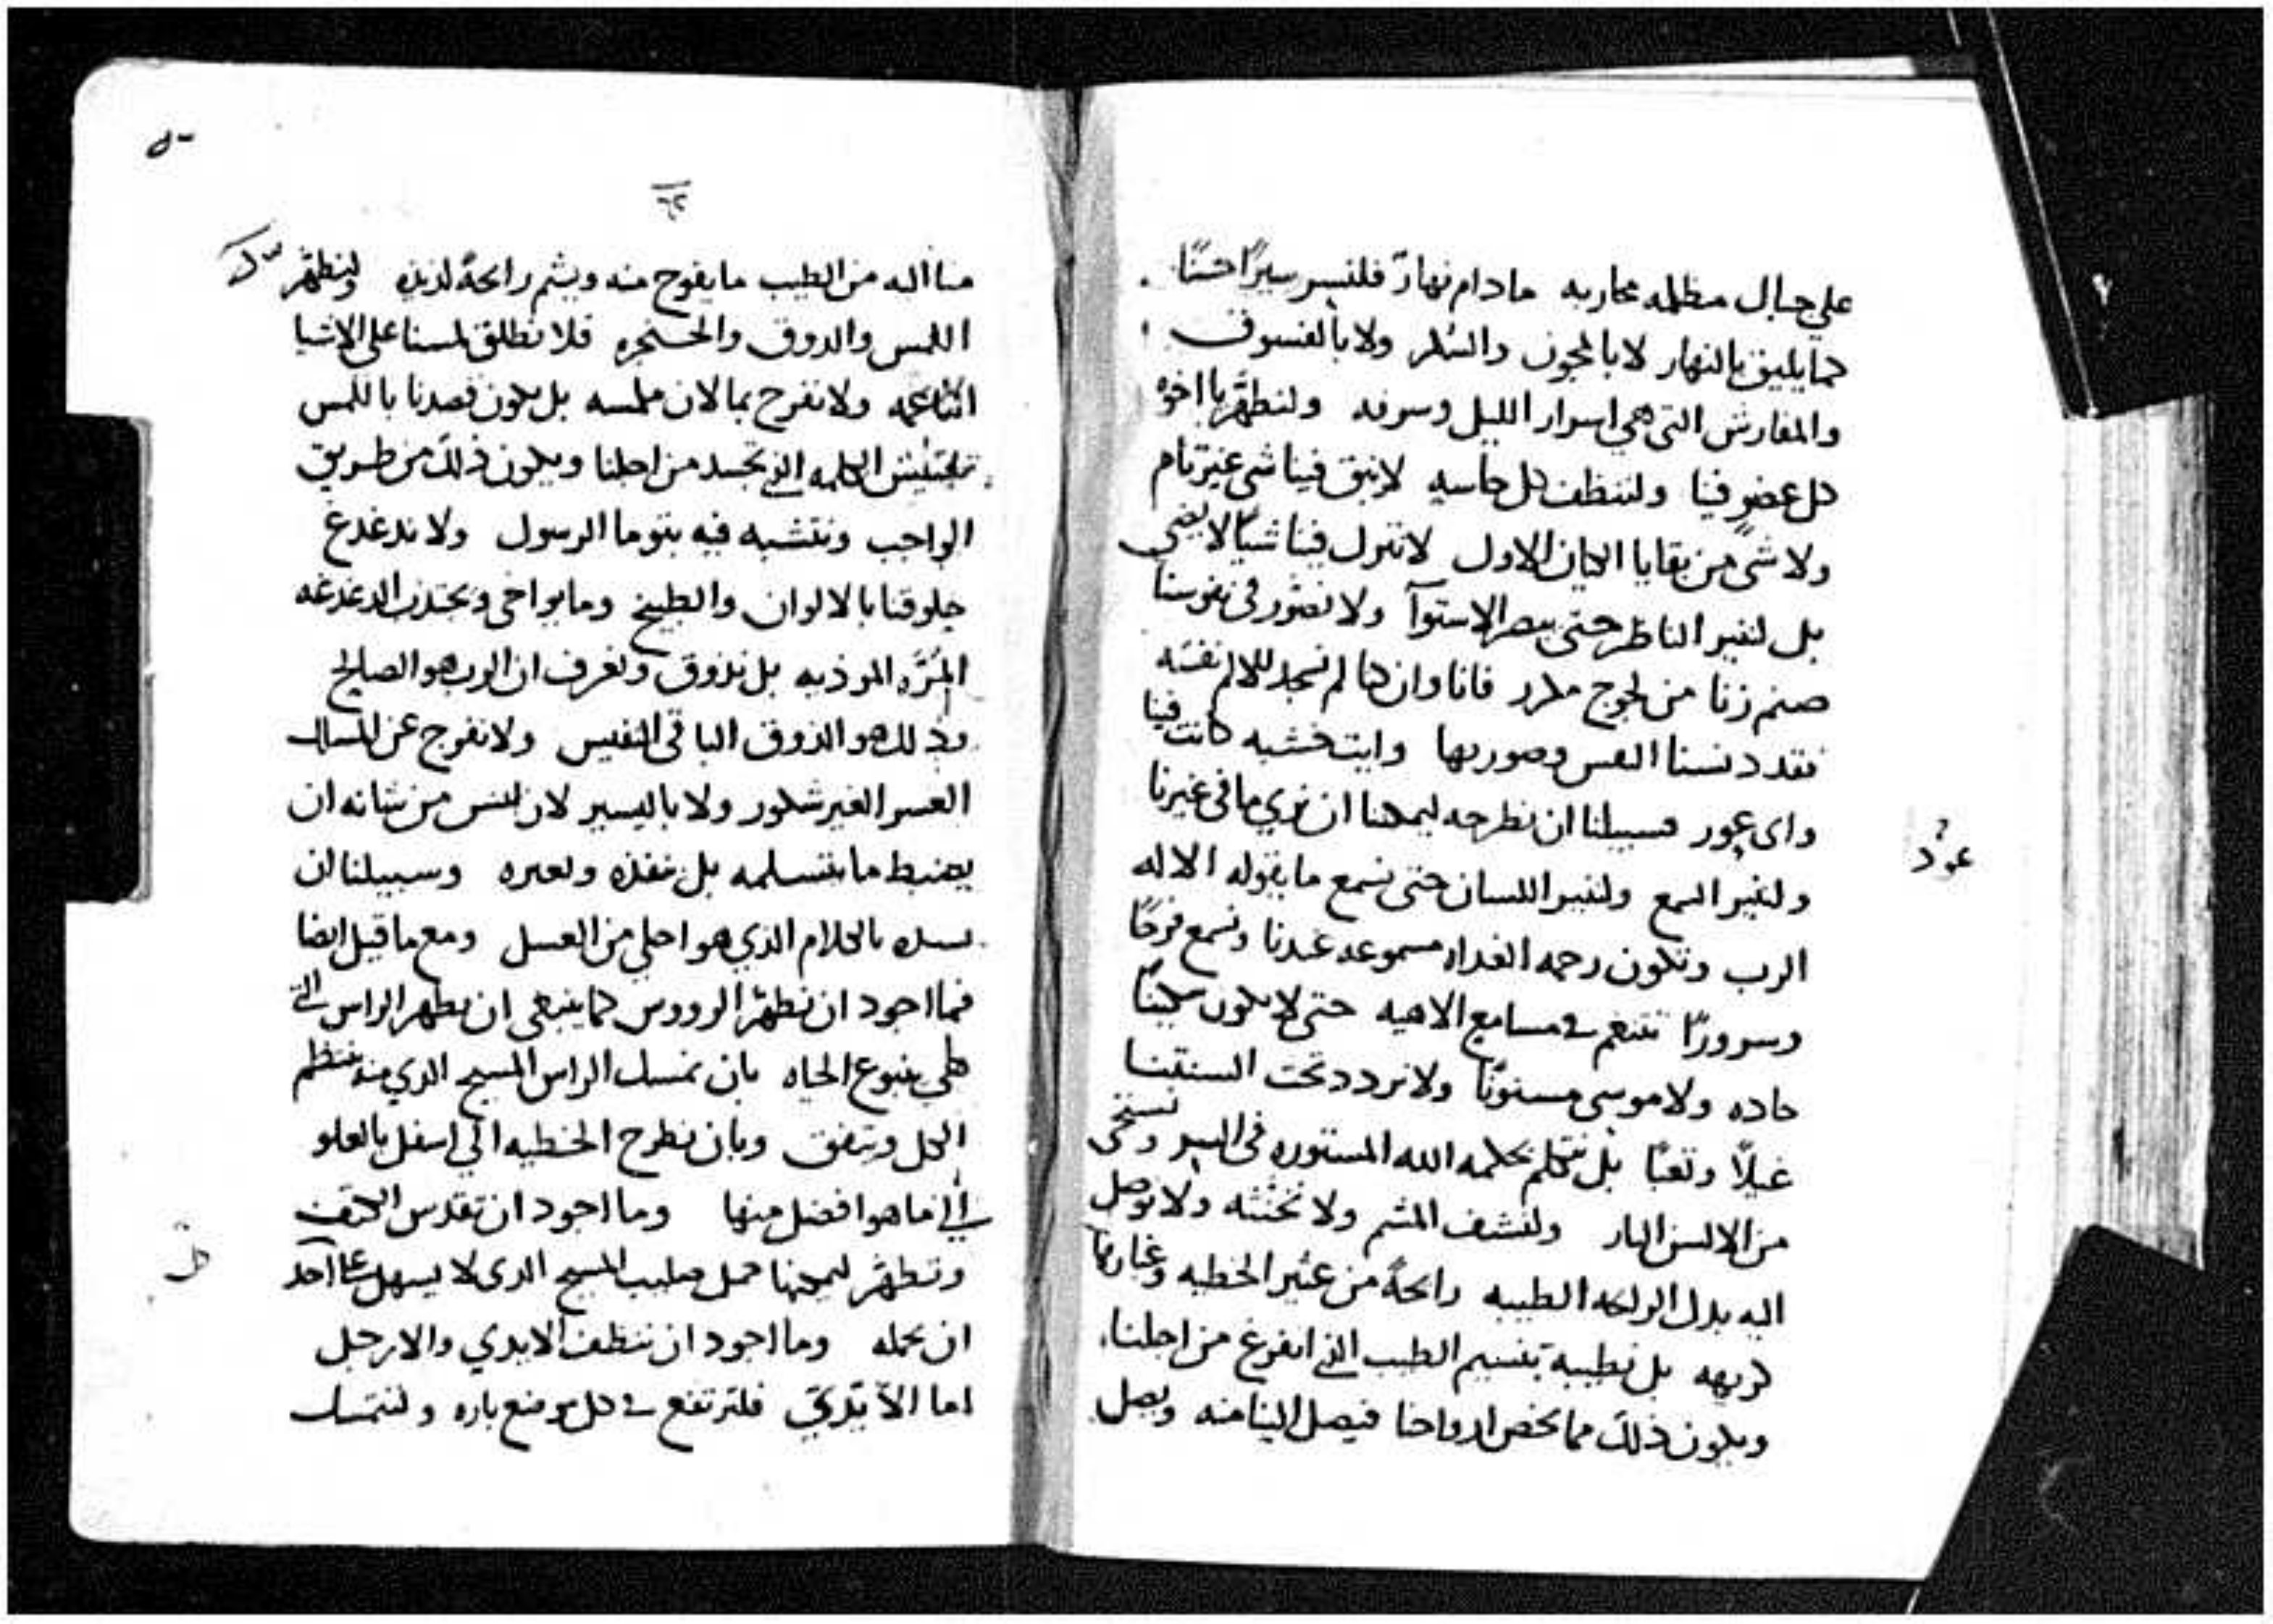 علي جبال مظلمه محاربه مادام نهارً فلنسر سيرًا حسنًا
كما يليق بالنهار لا بالمجون والسكر ولا بالفسوق
والمفارش التي هي اسرار الليل وسرقه ولنطهّر يا اخوه
كل عضو فينا ولننظف كل حاسه لا يبق فينا شي غير تام
ولا شي من بقايا الكيان الاول لا نترك فينا شيًا لا يضي
بل لننير الناظر حتى يبصر الاستوآ ولا نصّور في نفوسنا
صنم زنا من لجوج مكرر فانا وان كنا لم نسجد للالم نفسه
فقد دنسنا النفس وصورتها وايت خشبه كانت فينا
واى عور فسبيلنا ان نطرحه ليمكننا ان نري ما في غيرنا
عود
ولننير السمع ولننير اللسان حتى نسمع ما يقوله الاله
الرب وتكون رحمه الغداه مسموعه عندنا ونسمع فرحًا
وسرورًا تتنغم في مسامع الاهيه حتى لا يكون سكينًا
حاده ولا موسى مسنونًا ولا نردد تحت السنتنا
غيلًا وتعبًا بل نتكلم بحكمه الله المستوره في السر ونستحى
من الالسن النار ولنشف المشم ولا نخنثه ولا نوصل
اليه بدل الراحه الطيبه رائحةً من عثير الخطيه وغبارها
كريهه بل نطيبه بنسيم الطيب الذي افرغ من اجلنا
ويكون ذلك مما يخص ارواحنا فيصل الينا منه ويصل
٦٢
منا اليه من الطيب ما يفوح منه ويشم رائحةً لذيذه ولنطهّر
اللمس والدوق والحنجره فلا نطلق لمسنا على الاشيا
الناعمه ولا نفرح بما لان ملمسه بل يكون قصدنا باللمس
تفتيش الكلمه الذي تجسد من اجلنا ويكون ذلك من طريق
الواجب ونتشبه فيه بتوما الرسول ولا ندغدغ
حلوقنا بالالوان والطبيخ وما يواخي ويجتذب الدغدغه
المُرّه الموذيه بل نذوق ونعرف ان الرب هو الصالح
وذلك هو الذوق الباقى النفيس ولا نفرج عن المسالك
العسر الغير شكور ولا باليسير لان ليس من شانه ان
يضبط ما يتسلمه بل ينفذه ويعبره وسبيلنا ان
بالكلام الذي هو احلي من العسل ومع ما قيل ايضا
فما اجود ان نطهّر الرووس كما ينبغي ان يطهر الراس التي
هي ينبوع الحياه بان نمسك الراس المسيح الدي منه ينتظم
الكل ويتفق وبان نطرح الخطيه الي اسفل بالعلو
الي ما هو افضل منها وما اجود ان تقدس الكتف
وتطهّر ليمكنها حمل صليب المسيح الدى لا يسهل على احد
ان يحمله وما اجود ان ننظف الايدي والارجل
اما الايدي فلترتفع في كل موضع باره ولنتمسك